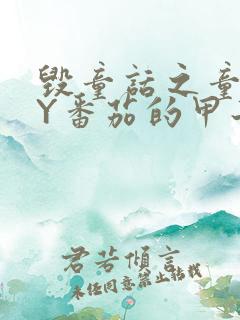 毁童话之童
Y番茄的甲
君若倾言
未经同意禁止转载